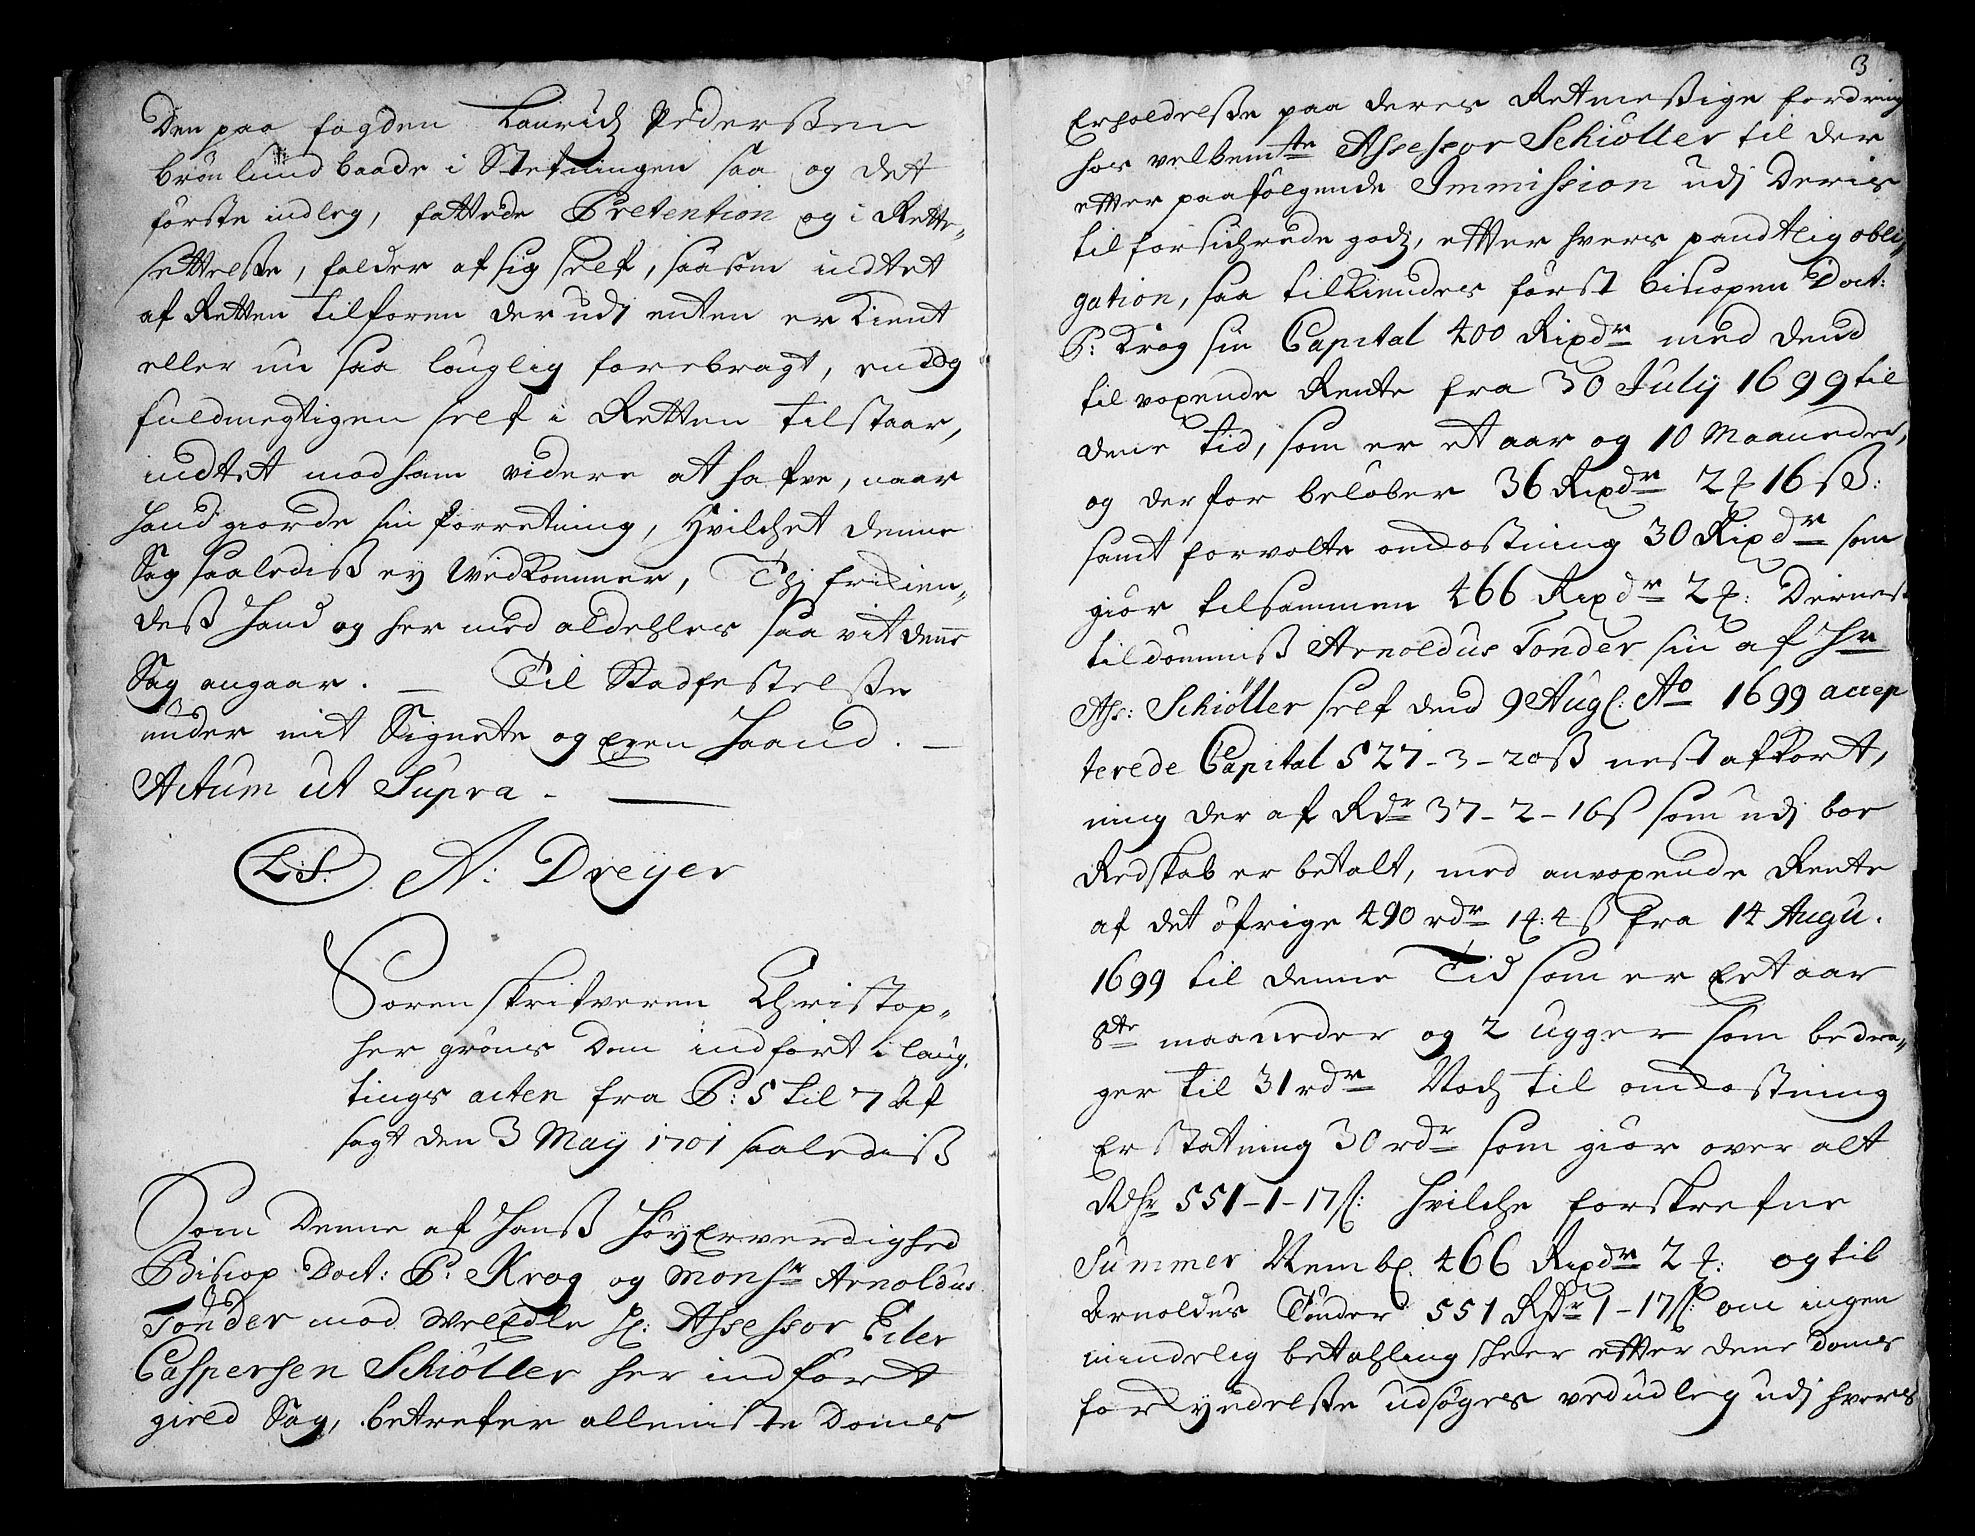 Den paa fogden Lauridz Pederssen
brönlund baade i Stefningen saa og det
förste indleg, fattede Pretention og i Rette„
settelsse, falder af sig self, saasom indtet
af Retten tilforen der udj enten er kient
eller nu saa lauglig forebragt, end og
fuldmegtigen self i Retten tilstaar,
indtet mod ham videre at hafve, naar
hand giorde sin forretning, Hvilchet denne
Sag saalediss ey Wedkommer, Thj frikien„
dess hand og her med aldehles saa vit denne
Sag angaar. — Til Stadfestelsse
under mit Signete og Egen Haand. —
Actum ut Supra - —
L.S. A: Dreyer
Sorenskrifveren Christop„
her gröns Dom indfört i laug„
tings acten fra P: 5 til 7 Af
sagt den 3 Maij 1701 saalediss
Som Denne af Hanss HöyErverdighed
Biscop Doct: P: Krog og Monsr Arnoldus
Tönder mod WelEdle Hr: Assessor Eiler
Caspersen Schiöller her indfört
gield Sag, betrefer alleniste Domes
3
Erholdelsse paa deres Retmessige fordring
hos velbemte Assessor Schiöller til der
etter paafölgende Immission udj Deris
til forsichrede godz, etter hvers pandtlig obli„
gation, saa tilkiendes först biscopen Doct:
P: Krog sin Capital 400 Rixdr med dend
til voxende Rente fra 30 July 1699 til
dene tid, som er et aar og 10 Maaneder,
og derfor belöber 36 Rixdr 2 ₰ 16 ss:
samt forvolte omkostning 30 Rixdr som
giör tilsammen 466 Rixdr 2 ₰: Dernest
tildömmiss Arnoldus Tönder sin af Hr
Ass: Schiöller self dend 9 Aug: Ao 1699 accep
terede Capital 527-3-20ss nest afkort,
ning der af Rdr 37-2-16s som udj bor
Redskab er betalt, med anvoxende Rente
af det öfrige 490 rdr 1₰: 4 ss fra 14 Augu.
1699 til denne Tid som er Eet aar
8te maaneder og 2 ugger som bedra„
ger til 31 rdr Noch til omkostning
Erstatning 30 rdr som giör over alt
Rdr 551-1-17s: hvilche forskrefne
Summer Nembl. 466 Rixdr 2 ₰: og til
Arnoldus Tönder 551 Rdr 1-17s: om ingen
mindelig betahling skeer etter dene Doms
forkyndelsse udsöges vedudleg udj hvers